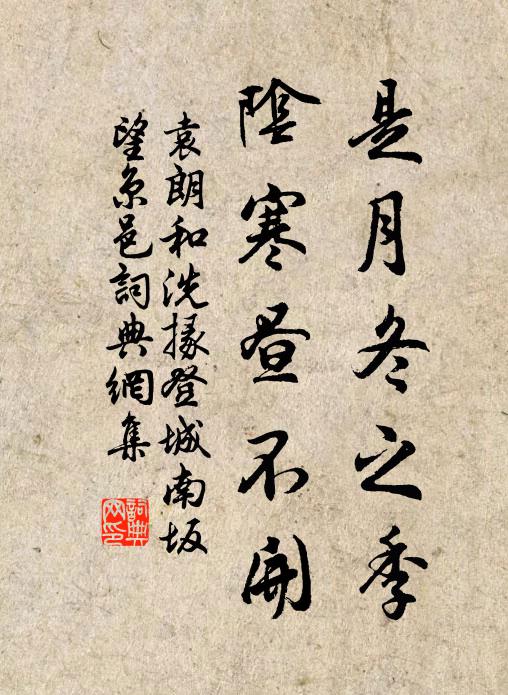 是月冬之季
陰寒昼不開
袁朗和洗掾登城南坂
望京邑詞典網集
詞典
网印